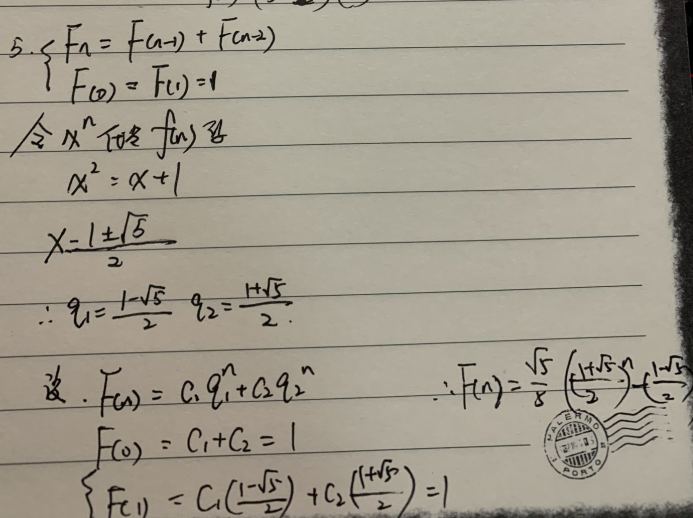 5. { Fn = F(n-1) + F(n-2)
F(0) = F(1) = 1
令 x^n 代替 f(n) 得
x² = x + 1
x = (1±√5)/2
∴ q₁ = (1-√5)/2  q₂ = (1+√5)/2.
设. F(n) = C₁q₁^n + C₂q₂^n
F(0) = C₁ + C₂ = 1
{ F(1) = C₁((1-√5)/2) + C₂((1+√5)/2) = 1
∴ F(n) = √5/5 ((1+√5)/2)^n - ((1-√5)/2)
PALERMO
PORTO